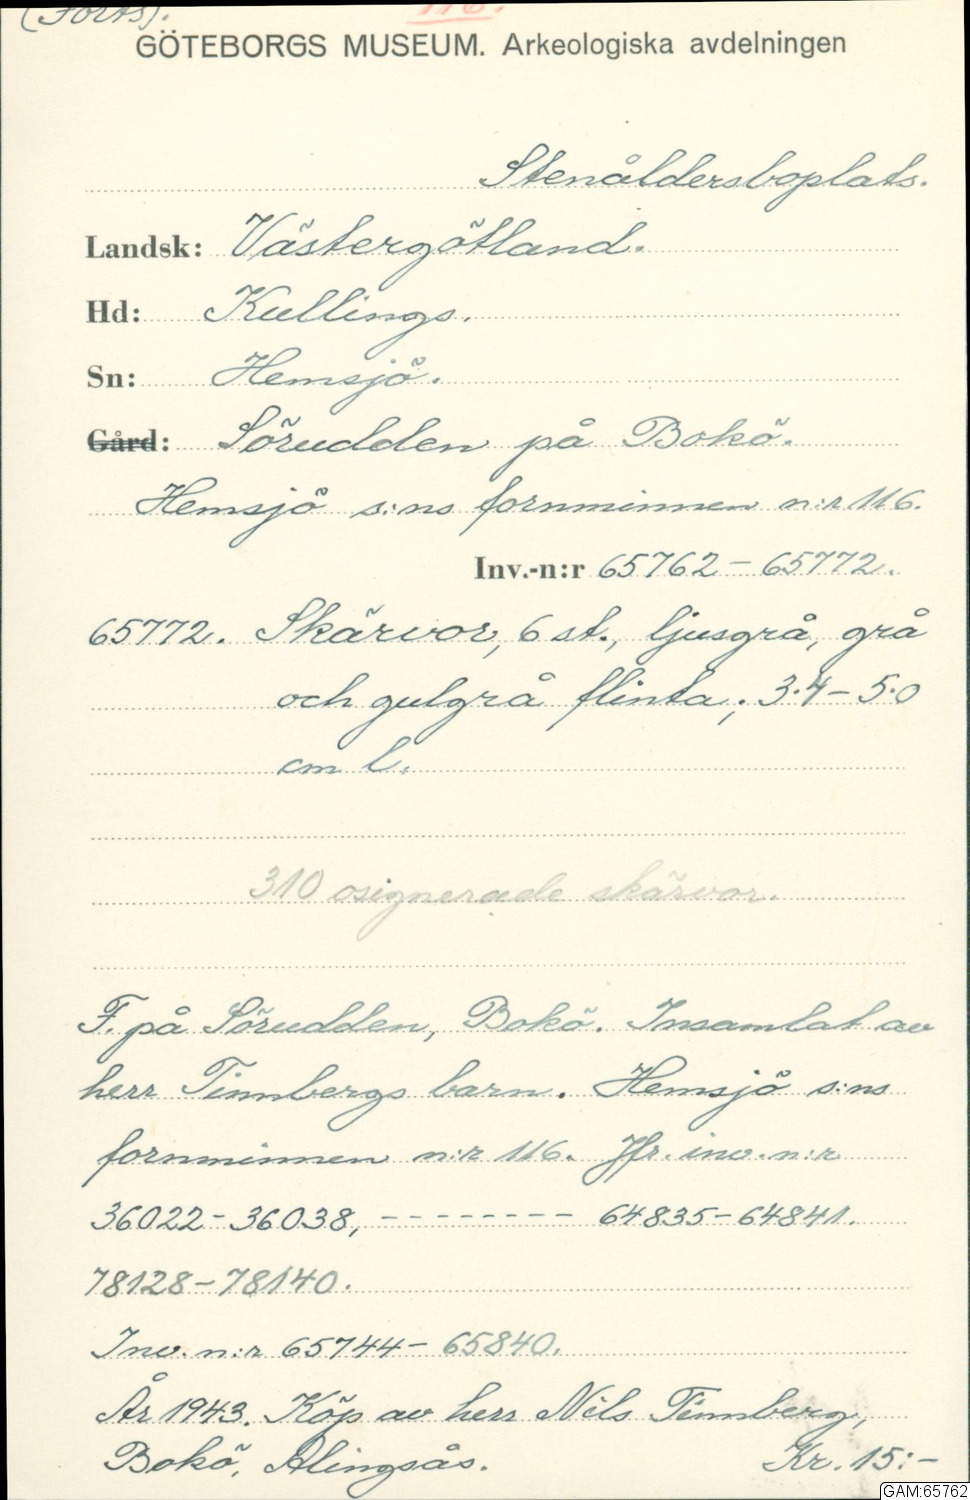 (Forts). 116.
GÖTEBORGS MUSEUM. Arkeologiska avdelningen
Stenåldersboplats.
Landsk: Västergötland.
Hd: Kullings.
Sn: Hemsjö.
Gård: Sörudden på Bokö.
Hemsjö s:ns fornminnen n:r 116.
Inv.-n:r 65762-65772.
65772. Skärvor, 6 st., ljusgrå, grå
och gulgrå flinta; 3.4-5.0
cm l.
310 osignerade skärvor.
F. på Sörudden, Bokö. Insamlat av
herr Tinnbergs barn. Hemsjö s:ns
fornminnen n:r 116. Jfr. inv. n:r
36022-36038, -------- 64835-64841.
78128-78140.
Inv. n:r 65744-65840.
År 1943. Köp av herr Nils Tinnberg,
Bokö, Alingsås. Kr. 15:-
GAM:65762